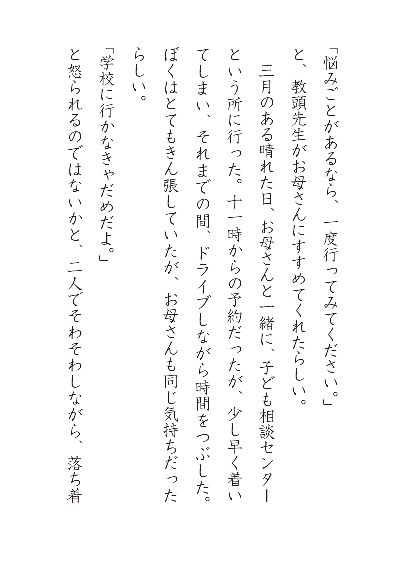 「悩みごとがあるなら、一度行ってみてください。」
と、教頭先生がお母さんにすすめてくれたらしい。
三月のある晴れた日、お母さんと一緒に、子ども相談センター
という所に行った。十一時からの予約だったが、少し早く着い
てしまい、それまでの間、ドライブしながら時間をつぶした。
ぼくはとてもきん張していたが、お母さんも同じ気持ちだった
らしい。
「学校に行かなきゃだめだよ。」
と怒られるのではないかと、二人でそわそわしながら、落ち着